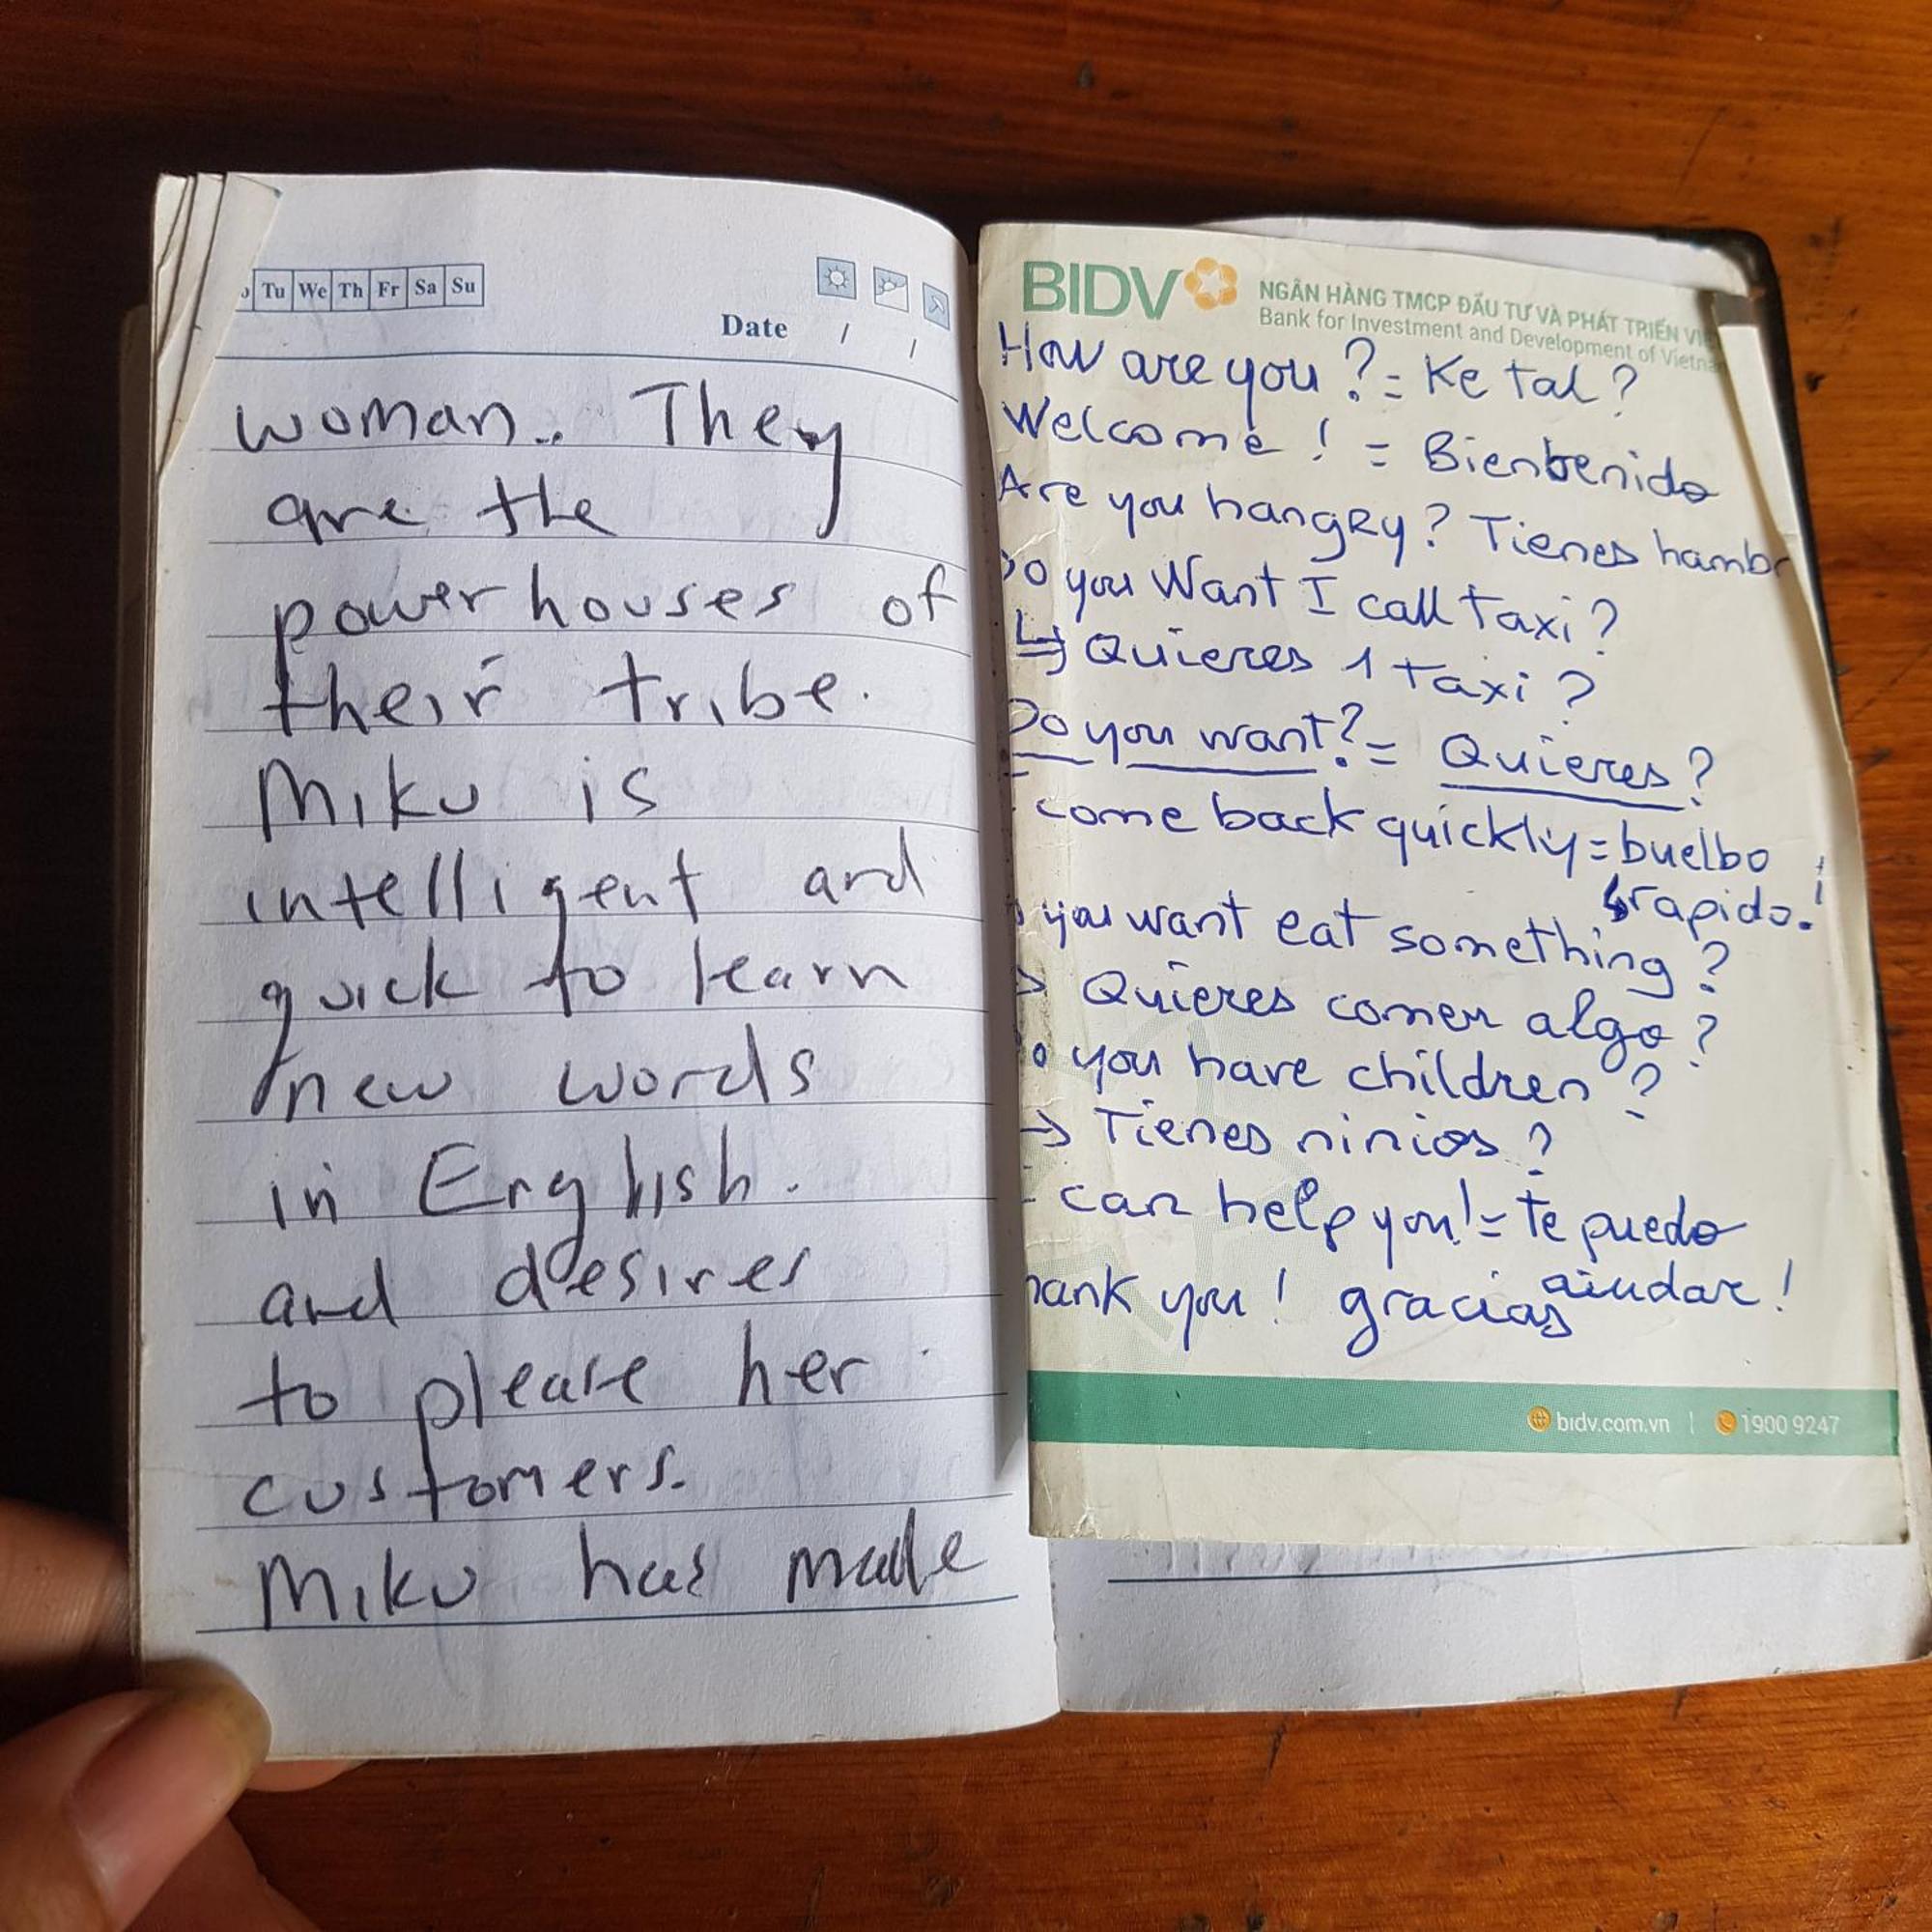 Tu We Th Fr Sa Su
Date / /
woman.. They
are the
powerhouses of
their tribe.
Miku is
intelligent and
quick to learn
new words
in English.
and desires
to please her
customers.
Miku has made
BIDV
NGÂN HÀNG TMCP ĐẦU TƯ VÀ PHÁT TRIỂN
Bank for Investment and Development of Vietna
How are you? = Ke tal?
Welcome! = Bienbenido
Are you hangry? Tienes hambr
o you Want I call taxi?
↳ Quieres 1 taxi?
Do you want? = Quieres?
- come back quickly = buelbo
↳ rapido!
you want eat something?
> Quieres comer algo?
o you have children?
→ Tienes ninios?
- can help you! = te puedo
aiudar!
hank you! gracias
bidv.com.vn | 1900 9247